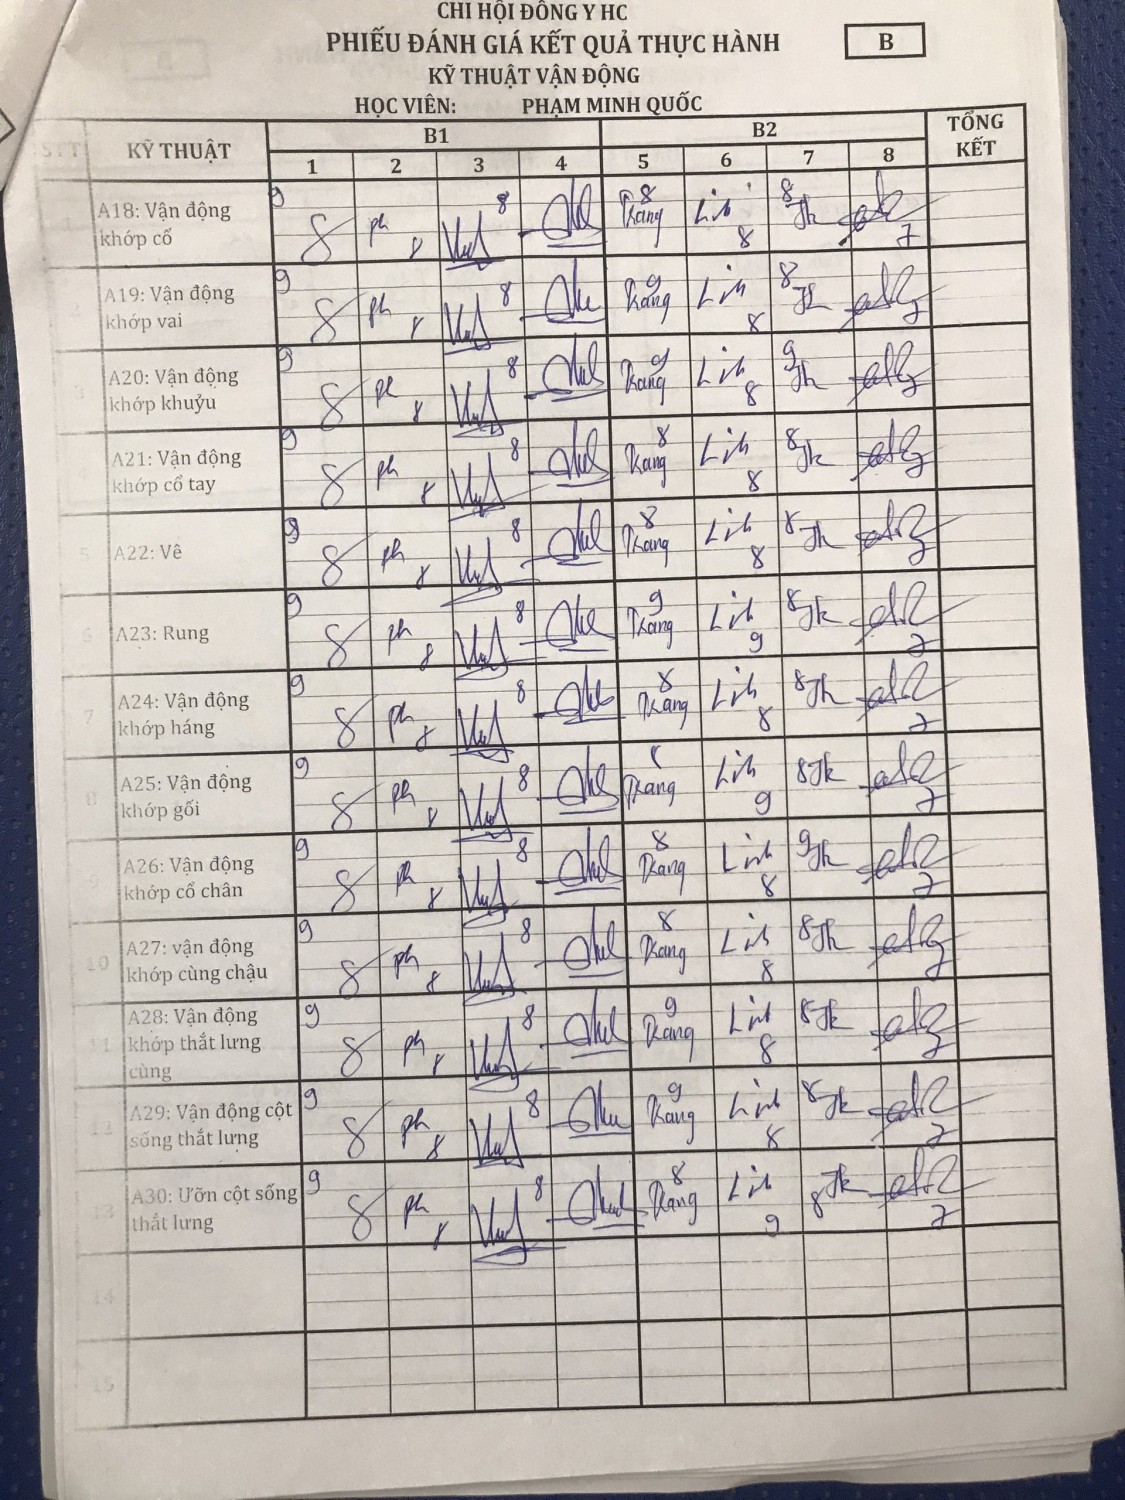 CHI HỘI ĐÔNG Y HC
PHIẾU ĐÁNH GIÁ KẾT QUẢ THỰC HÀNH
B
KỸ THUẬT VẬN ĐỘNG
HỌC VIÊN: PHẠM MINH QUỐC
STT KỸ THUẬT B1 B2 TỔNG KẾT
1 2 3 4 5 6 7 8
1 A18: Vận động khớp cổ 9 8 ph 8 8 8 Trang Linh 8 8 Th 7
A19: Vận động khớp vai 9 8 ph 8 8 9 Trang Linh 8 8 Th 7
3 A20: Vận động khớp khuỷu 9 8 ph 8 8 9 Trang Linh 8 9 Th 7
A21: Vận động khớp cổ tay 9 8 ph 8 8 8 Trang Linh 8 8 Th 7
5 A22: Vê 8 ph 8 8 8 Trang Linh 8 8 Th 7
6 A23: Rung 9 8 ph 8 8 9 Trang Linh 9 8 Th 7
7 A24: Vận động khớp háng 9 8 ph 8 8 8 Trang Linh 8 8 Th 7
8 A25: Vận động khớp gối 9 8 ph 8 8 Trang Linh 9 8 Th 7
9 A26: Vận động khớp cổ chân 9 8 ph 8 8 8 Trang Linh 8 9 Th 7
10 A27: vận động khớp cùng chậu 9 8 ph 8 8 8 Trang Linh 8 8 Th 7
11 A28: Vận động khớp thắt lưng cùng 9 8 ph 8 8 9 Trang Linh 8 8 Th 7
12 A29: Vận động cột sống thắt lưng 9 8 ph 8 8 9 Trang Linh 8 8 Th 7
13 A30: Ưỡn cột sống thắt lưng 9 8 ph 8 8 8 Trang Linh 9 8 Th 7
14
15